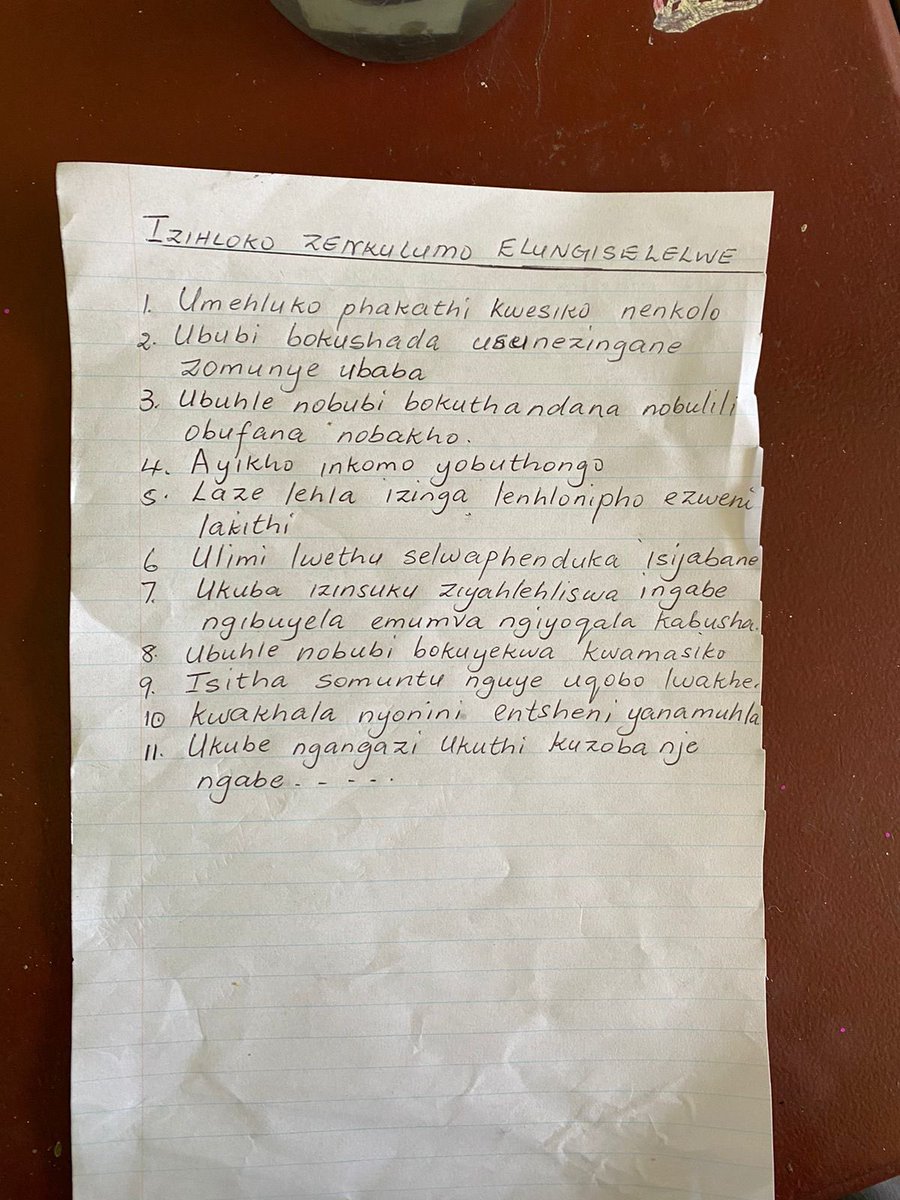 IZIHLOKO ZENKULUMO ELUNGISELELWE
1. Umehluko phakathi kwesiko nenkolo
2. Ububi bokushada usunezingane
zomunye ubaba
3. Ubuhle nobubi bokuthandana nobulili
obufana nobakho.
4. Ayikho inkomo yobuthongo
5. Laze lehla izinga lenhlonipho ezweni
lakithi
6 Ulimi lwethu selwaphenduka isijabane
7. Ukuba izinsuku ziyahlehliswa ingabe
ngibuyela emumva ngiyoqala kabusha.
8. Ubuhle nobubi bokuyekwa kwamasiko
9. Isitha somuntu nguye uqobo lwakhe.
10 Kwakhala nyonini entsheni yanamuhla
11. Ukube ngangazi ukuthi kuzoba nje
ngabe - - - - .